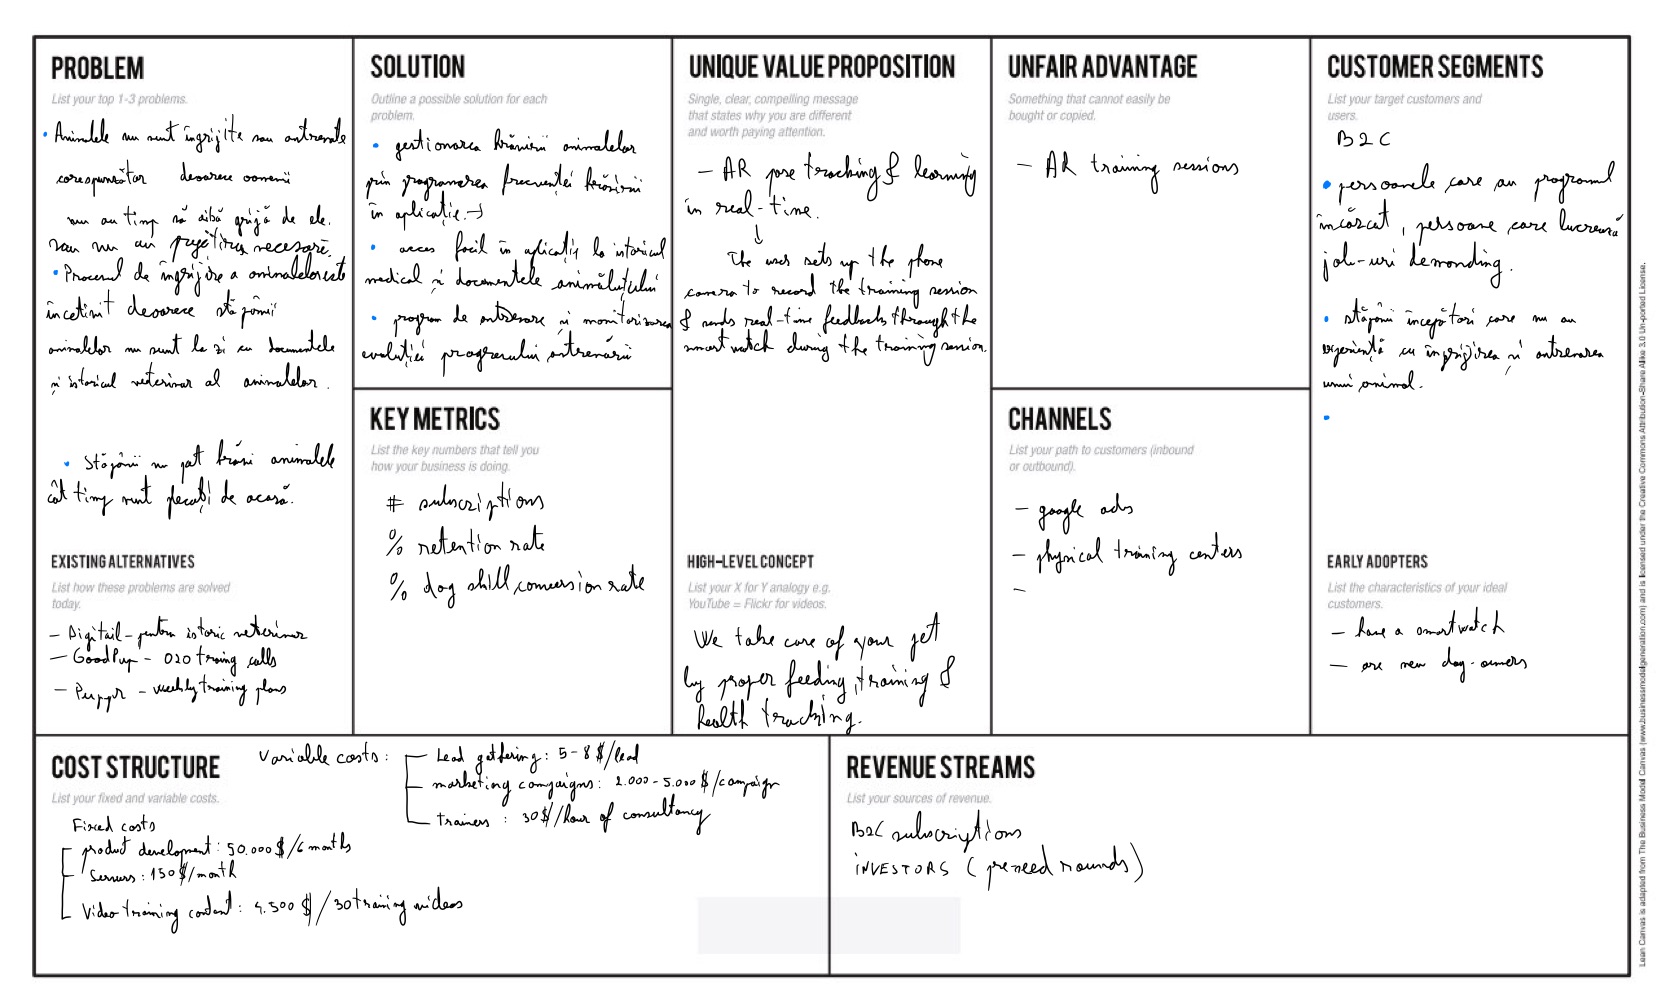 PROBLEM
List your top 1-3 problems.
• Animalele nu sunt îngrijite sau antrenate
corespunzător deoarece oamenii
nu au timp să aibă grijă de ele.
sau nu au pregătirea necesară.
• Procesul de îngrijire a animalelor este
încetinit deoarece stăpânii
animalelor nu sunt la zi cu documentele
și istoricul veterinar al animalelor.
• Stăpânii nu pot hrăni animalele
cât timp sunt plecați de acasă.
EXISTING ALTERNATIVES
List how these problems are solved
today.
- Digitail - pentru istoric veterinar
- GoodPup - O2O training calls
- Puppr - weekly training plans
SOLUTION
Outline a possible solution for each
problem.
• gestionarea hrănirii animalelor
prin programarea frecvenței hrănirii
în aplicație. →
• acces facil în aplicație la istoricul
medical și documentele animăluțului
• program de antrenare și monitorizarea
evoluției progresului antrenării
KEY METRICS
List the key numbers that tell you
how your business is doing.
# subscriptions
% retention rate
% dog skill conversion rate
UNIQUE VALUE PROPOSITION
Single, clear, compelling message
that states why you are different
and worth paying attention.
- AR pose tracking & learning
in real-time.
↓
The user sets up the phone
camera to record the training session
& sends real-time feedback through the
smartwatch during the training session.
HIGH-LEVEL CONCEPT
List your X for Y analogy e.g.
YouTube = Flickr for videos.
We take care of your pet
by proper feeding, training &
health tracking.
UNFAIR ADVANTAGE
Something that cannot easily be
bought or copied.
- AR training sessions
CHANNELS
List your path to customers (inbound
or outbound).
- google ads
- physical training centers
-
CUSTOMER SEGMENTS
List your target customers and
users.
B2C
• persoanele care au programul
încărcat, persoane care lucrează
job-uri demanding.
• stăpâni începători care nu au
experiență cu îngrijirea și antrenarea
unui animal.
•
EARLY ADOPTERS
List the characteristics of your ideal
customers.
- have a smartwatch
- are new dog-owners
COST STRUCTURE
List your fixed and variable costs.
Fixed costs
product development: 50.000 $/6 months
Servers: 150 $/month
Video training content: 4.500 $ / 30 training videos
Variable costs:
Lead gathering: 5-8 $/lead
marketing campaigns: 2.000 - 5.000 $/campaign
trainers : 30 $/hour of consultancy
REVENUE STREAMS
List your sources of revenue.
B2C subscriptions
INVESTORS (preseed rounds)
Lean Canvas is adapted from The Business Model Canvas (www.businessmodelgeneration.com) and is licensed under the Creative Commons Attribution-Share Alike 3.0 Un-ported License.